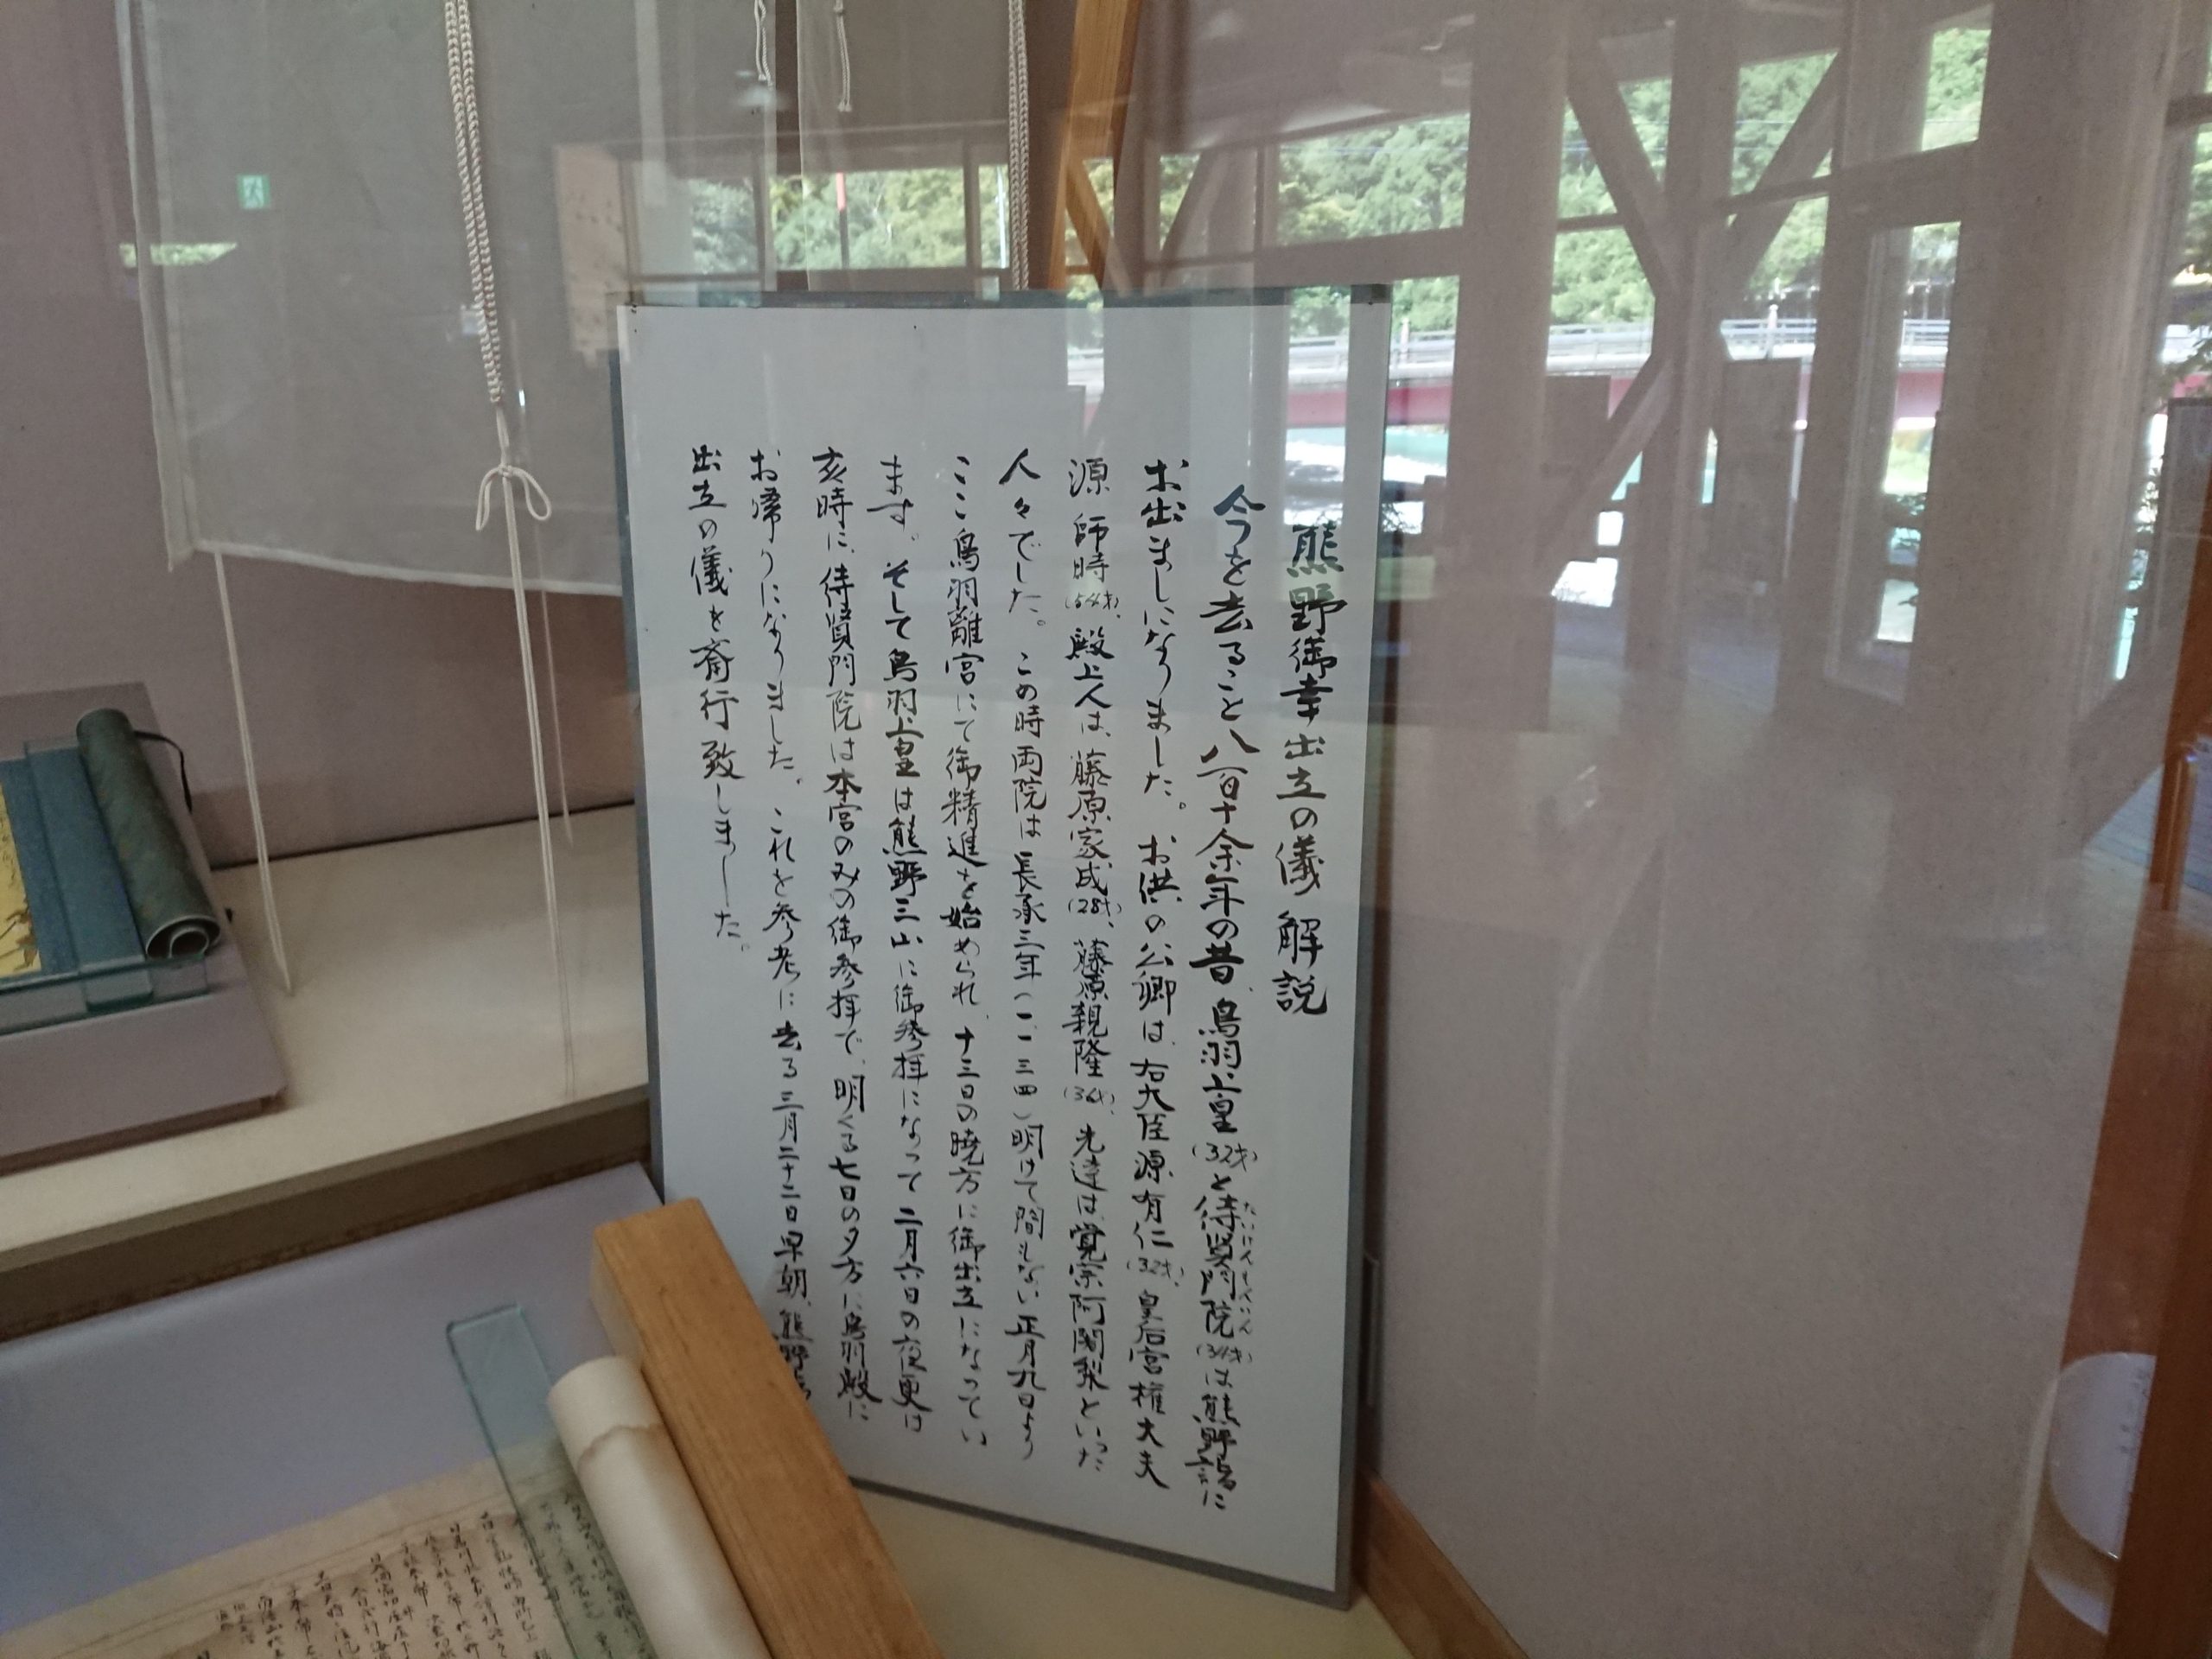 熊野御幸出立の儀 解説
今を去ること八百十余年の昔、鳥羽上皇(32才)と待賢門院(34才)は熊野詣に
たいけんもんいん
お出ましになりました。お供の公卿は、右大臣源有仁(32才)、皇后宮権大夫
源師時(54才)、殿上人は、藤原家成(28才)、藤原親隆(36才)、先達は、覚宗阿闍梨といった
人々でした。この時両院は長承三年(一一三四)明けて間もない正月九日より
ここ鳥羽離宮にて御精進を始められ、十三日の暁方に御出立になってい
ます。そして鳥羽上皇は熊野三山に御参拝になって二月六日の夜更け
亥時に、待賢門院は本宮のみの御参拝で、明くる七日の夕方に鳥羽殿に
お帰りになりました。これを参考に去る三月二十二日早朝、熊野詣
出立の儀を斎行致しました。